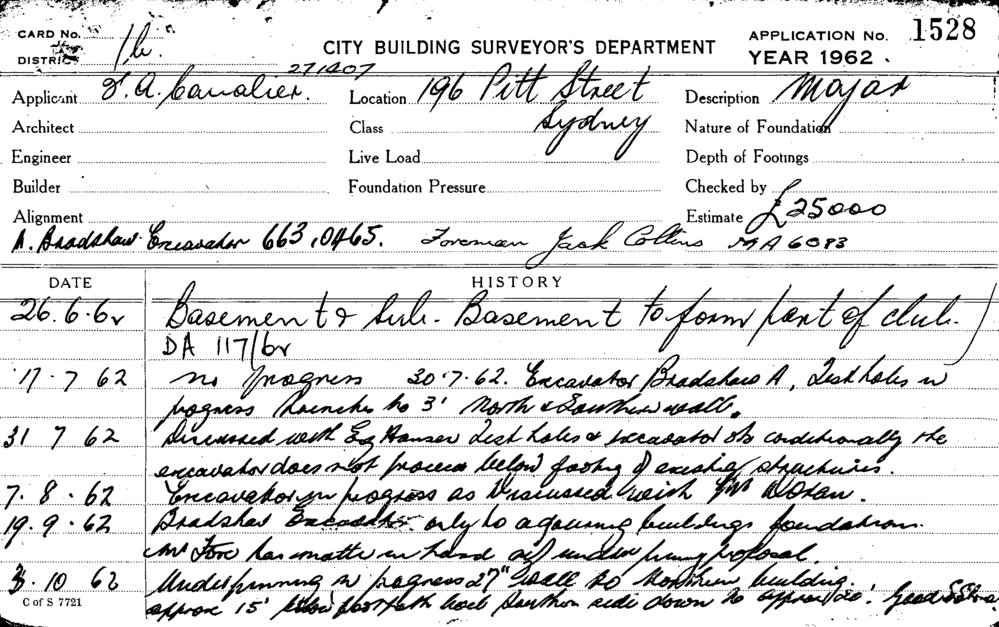 CARD No. 1b. CITY BUILDING SURVEYOR'S DEPARTMENT APPLICATION No. 1528
DISTRICT YEAR 1962.
271407
Applicant F. A. Cavalier. Location 196 Pitt Street Description Major
Architect Class Sydney Nature of Foundation
Engineer Live Load Depth of Footings
Builder Foundation Pressure Checked by
Alignment Estimate £25000
A. Bradshaw. Excavator 663.0465. Foreman Jack Collins MA 6083
DATE HISTORY
26.6.62 Basement & Sub-Basement to form part of club.
DA 117/62
17.7.62 no progress 30.7.62. Excavator Bradshaw A, Test holes in
progress trenches to 3' North & Southern wall.
31 7 62 Discussed with Test holes & excavator ok conditionally the
excavator does not proceed below footing of existing structures.
7.8.62 Excavator in progress as Discussed with
19.9.62 Bradshaw only to adjourning buildings foundation.
Mr has matter in hand underpinning proposal.
3.10 62 Underpinning in progress 27" wall to Northern building.
approx 15' below footpath Southern side down to approx 20'. Good
C of S 7721